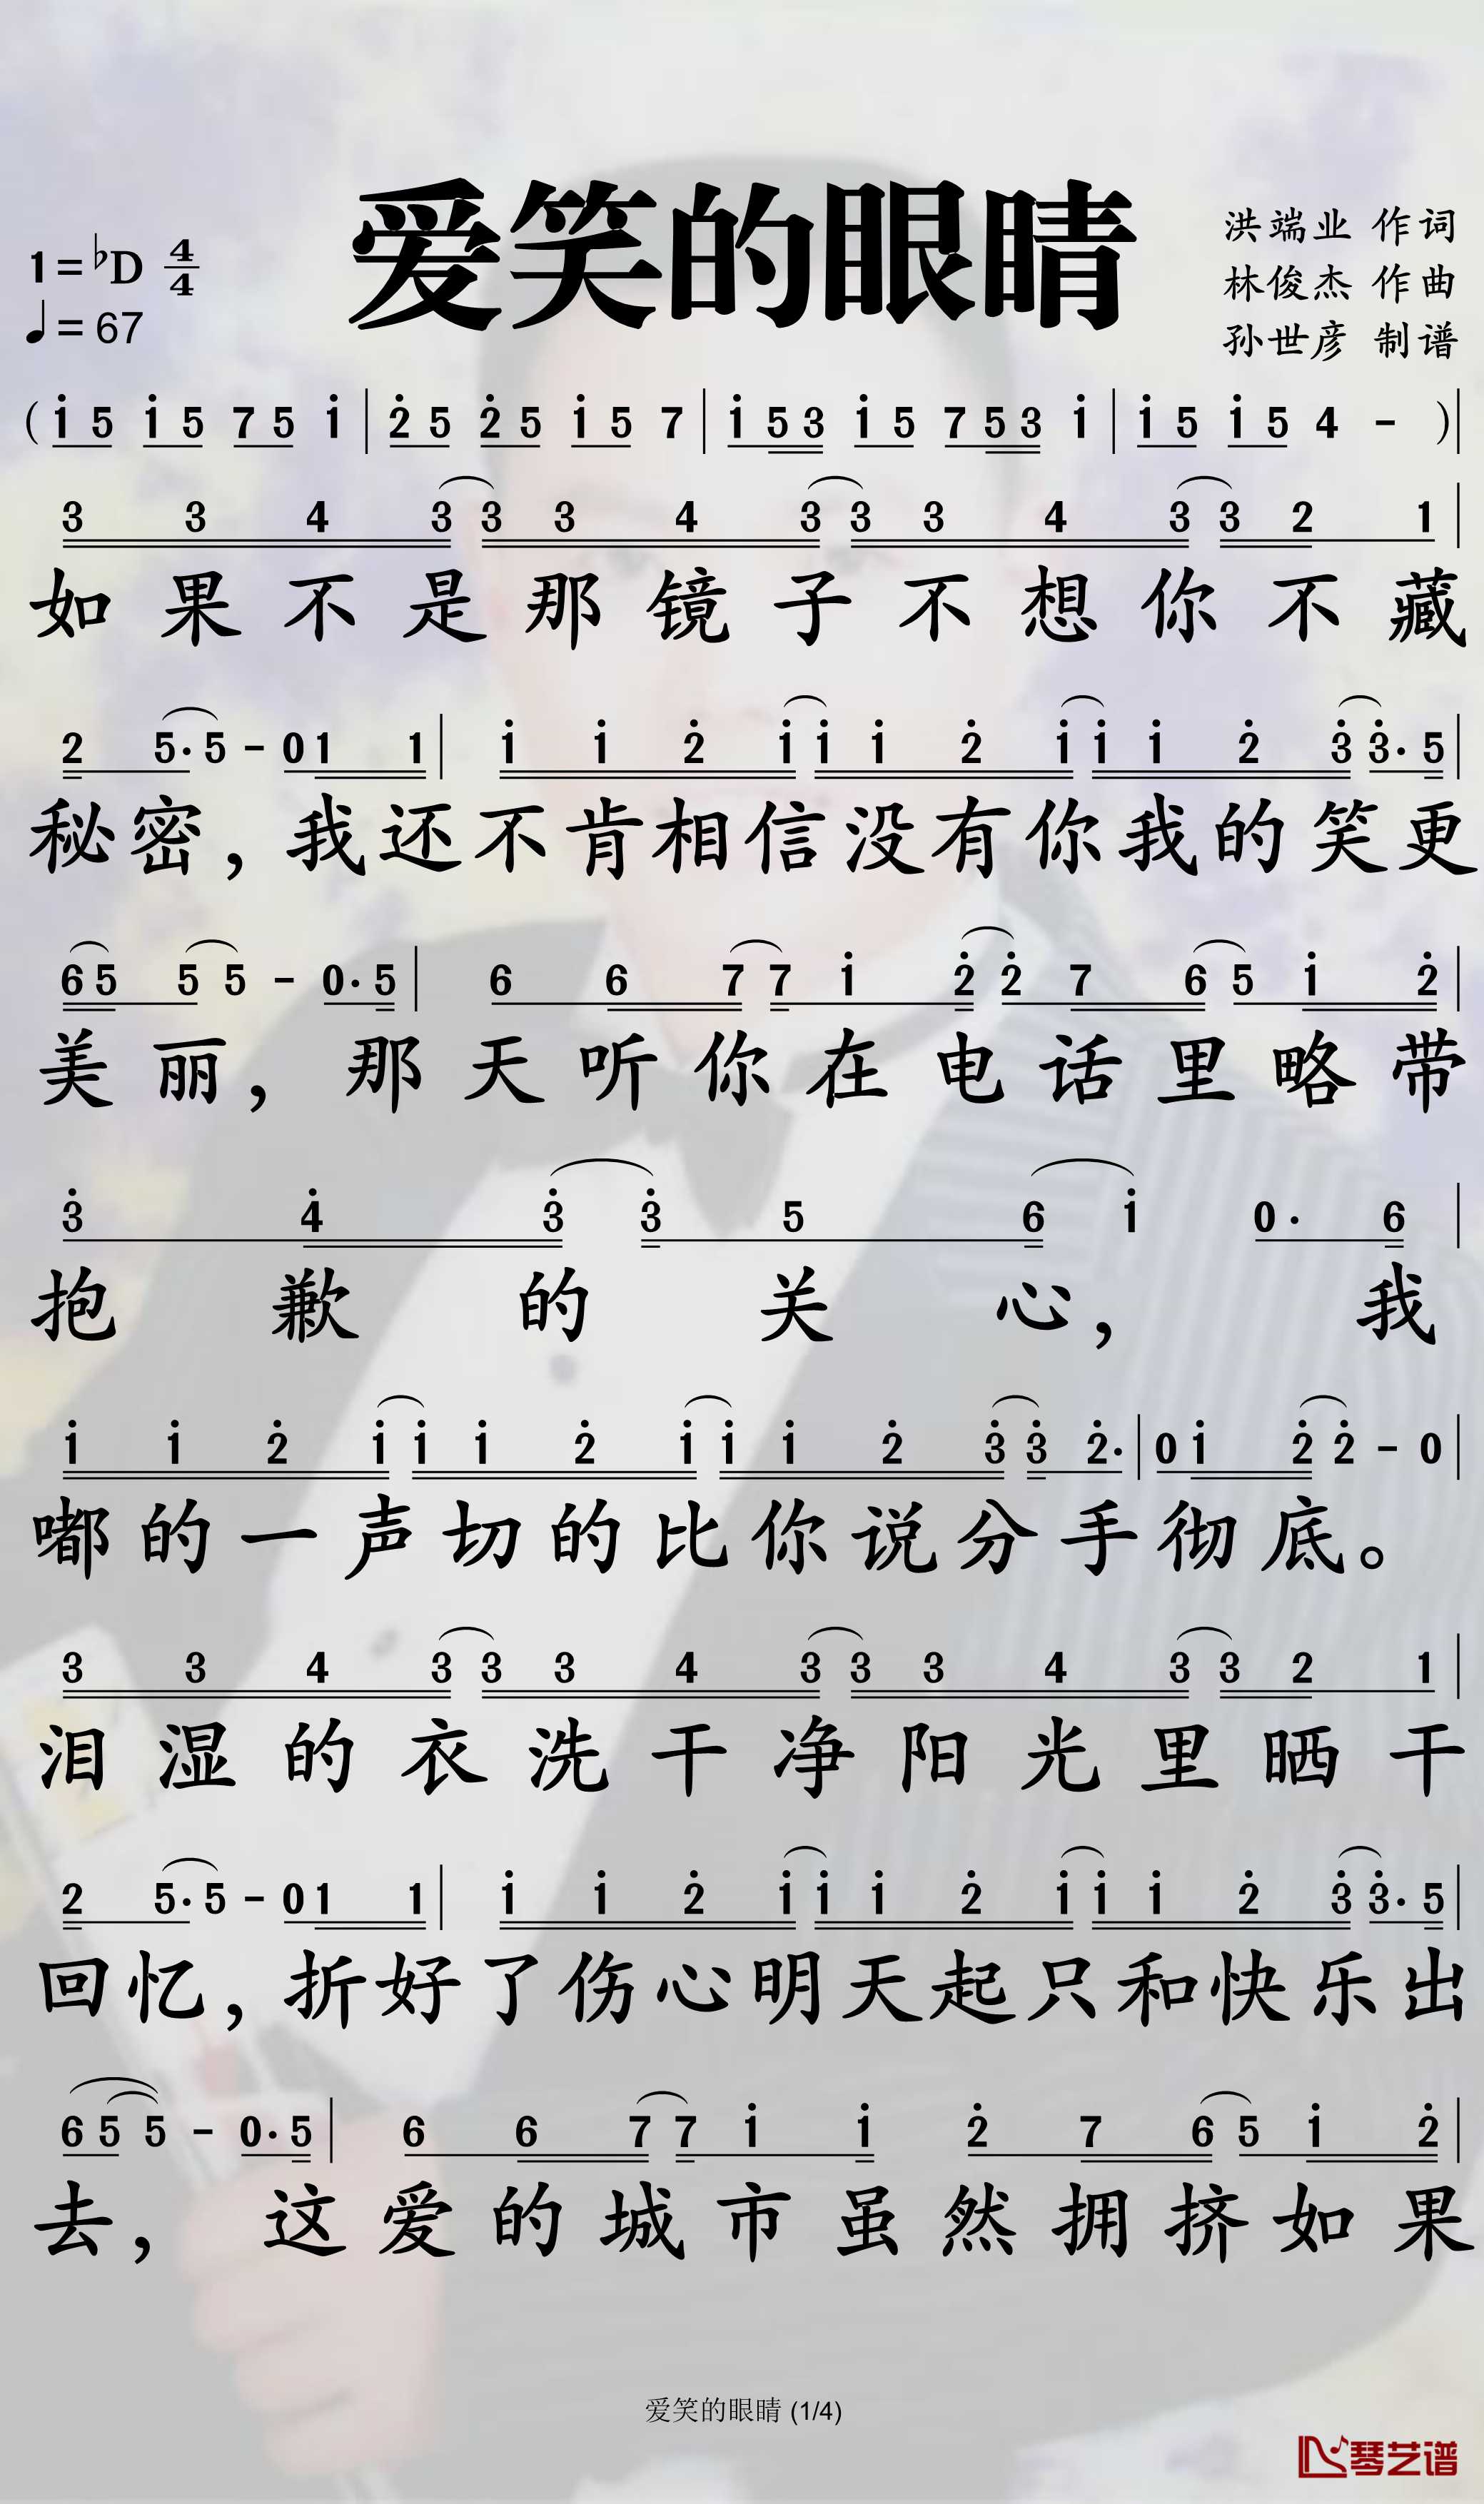 爱笑的眼睛
1=♭D 4/4
♩=67
洪端业 作词
林俊杰 作曲
孙世彦 制谱
( i 5 i 5 7 5 i | 2̇ 5 2̇ 5 i 5 7 | i 5 3 i 5 7 5 3 i | i 5 i 5 4 - ) |
3 3 4 3 3 3 4 3 3 3 4 3 3 2 1 |
如果不是那镜子不想你不藏
2 5· 5 - 0 1 1 | i i 2̇ i i i 2̇ i i i 2̇ 3̇ 3̇· 5 |
秘密，我还不肯相信没有你我的笑更
6 5 5 5 - 0· 5 | 6 6 7 7 i 2̇ 2̇ 7 6 5 i 2̇ |
美丽，那天听你在电话里略带
3̇ 4̇ 3̇ 3̇ 5 6 i 0· 6 |
抱歉的关心，我
i i 2̇ i i i 2̇ i i i 2̇ 3̇ 3̇ 2̇· | 0 i 2̇ 2̇ - 0 |
嘟的一声切的比你说分手彻底。
3 3 4 3 3 3 4 3 3 3 4 3 3 2 1 |
泪湿的衣洗干净阳光里晒干
2 5· 5 - 0 1 1 | i i 2̇ i i i 2̇ i i i 2̇ 3̇ 3̇· 5 |
回忆，折好了伤心明天起只和快乐出
6 5 5 - 0· 5 | 6 6 7 7 i i 2̇ 7 6 5 i 2̇ |
去，这爱的城市虽然拥挤如果
爱笑的眼睛 (1/4)
琴艺谱